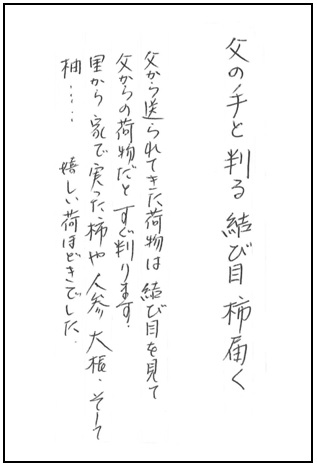 父の手と判る結び目柿届く
父から送られてきた荷物は結び目を見て
父からの荷物だとすぐ判ります.
里から家で実った柿や人参、大根、そして
柚…… 嬉しい荷ほどきでした.